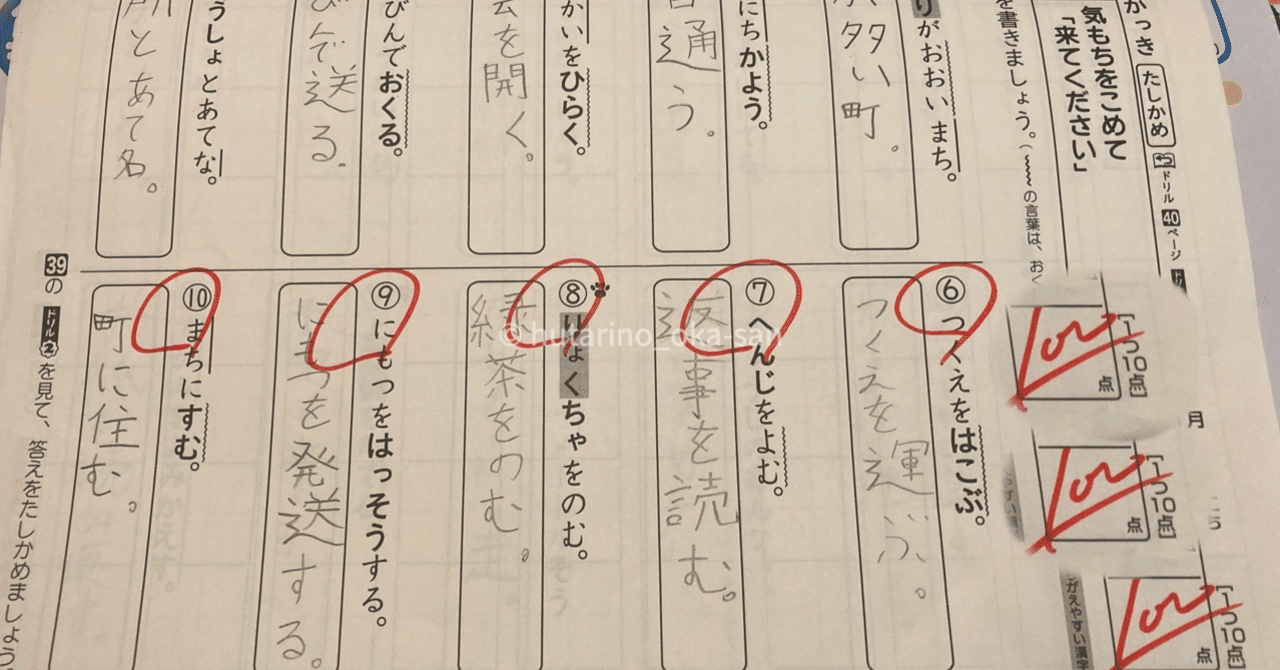 がっき
たしかめ
ドリル
40
ページ
気もちをこめて
「来てください」
を書きましょう。(
の言葉は、お
月
[1つ10点]
100
点
[1つ10点]
100
点
[1つ10点]
100
点
りがおおいまち。
多い町。
にちかよう。
通う。
かいをひらく。
を開く。
びんでおくる。
びんで送る。
うしょとあてな。
所とあて名。
⑥つくえをはこぶ。
つくえを運ぶ。
⑦へんじをよむ。
返事を読む。
⑧りょくちゃをのむ。
緑茶をのむ。
⑨にもつをはっそうする。
にもつを発送する。
⑩まちにすむ。
町に住む。
39の
ドリル
②
を見て、答えをたしかめましょう
© hutarino_oka-san